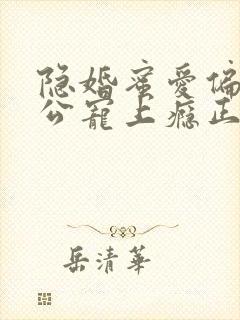 隐婚蜜爱偏
公宠上瘾正
岳清华